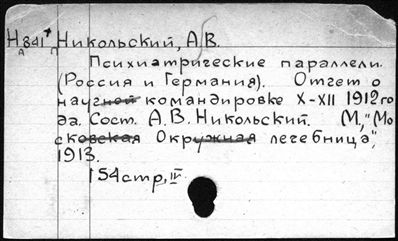 Н841 Никольский, А.В.
А П
Психиатрические параллели.
(Россия и Германия). Отчет о
научной командировке X-XII 1912 го
да. Сост. А.В. Никольский. М., "Мо
сковская Окружная лечебница",
1913.
154 стр, IV